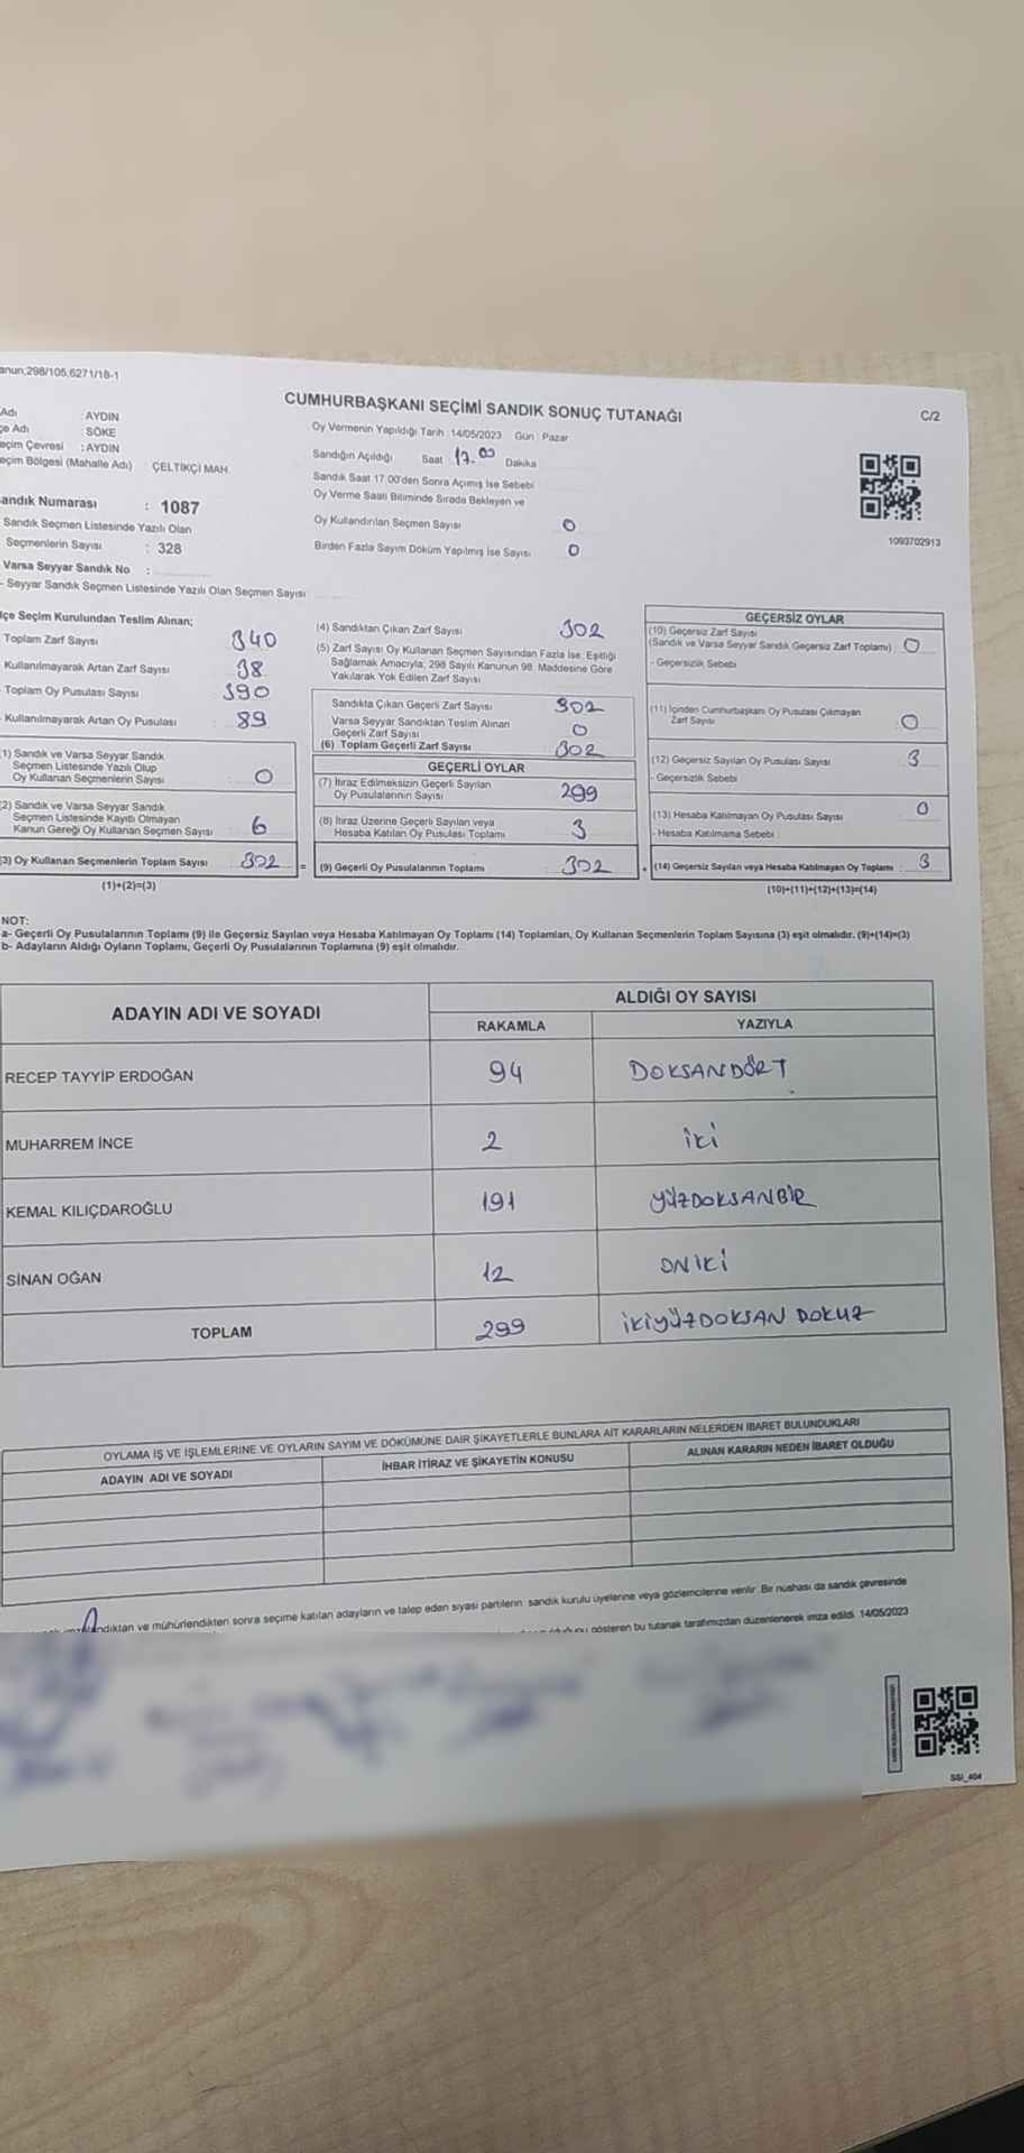 anun,298/105,6271/18-1
CUMHURBAŞKANI SEÇİMİ SANDIK SONUÇ TUTANAĞI
C/2
Adı : AYDIN
çe Adı : SÖKE
eçim Çevresi : AYDIN
eçim Bölgesi (Mahalle Adı) : ÇELTİKÇİ MAH.
Oy Vermenin Yapıldığı Tarih : 14/05/2023 Gün : Pazar
Sandığın Açıldığı Saat 17.00 Dakika
Sandık Saat 17:00'den Sonra Açımış İse Sebebi
Oy Verme Saati Bitiminde Sırada Bekleyen ve
Oy Kullandırılan Seçmen Sayısı 0
Birden Fazla Sayım Döküm Yapılmış İse Sayısı 0
1093702913
andık Numarası : 1087
Sandık Seçmen Listesinde Yazılı Olan
Seçmenlerin Sayısı : 328
Varsa Seyyar Sandık No :
- Seyyar Sandık Seçmen Listesinde Yazılı Olan Seçmen Sayısı
lçe Seçim Kurulundan Teslim Alınan;
Toplam Zarf Sayısı 340
Kullanılmayarak Artan Zarf Sayısı 38
- Toplam Oy Pusulası Sayısı 390
- Kullanılmayarak Artan Oy Pusulası 89
1) Sandık ve Varsa Seyyar Sandık
Seçmen Listesinde Yazılı Olup
Oy Kullanan Seçmenlerin Sayısı 0
2) Sandık ve Varsa Seyyar Sandık
Seçmen Listesinde Kayıtlı Olmayan
Kanun Gereği Oy Kullanan Seçmen Sayısı 6
3) Oy Kullanan Seçmenlerin Toplam Sayısı 302 =
(1)+(2)=(3)
(4) Sandıktan Çıkan Zarf Sayısı 302
(5) Zarf Sayısı Oy Kullanan Seçmen Sayısından Fazla İse; Eşitliği
Sağlamak Amacıyla, 298 Sayılı Kanunun 98. Maddesine Göre
Yakılarak Yok Edilen Zarf Sayısı
Sandıkta Çıkan Geçerli Zarf Sayısı 302
Varsa Seyyar Sandıktan Teslim Alınan
Geçerli Zarf Sayısı 0
(6) Toplam Geçerli Zarf Sayısı 302
GEÇERLİ OYLAR
(7) İtiraz Edilmeksizin Geçerli Sayılan
Oy Pusulalarının Sayısı 299
(8) İtiraz Üzerine Geçerli Sayılan veya
Hesaba Katılan Oy Pusulası Toplamı 3
(9) Geçerli Oy Pusulalarının Toplamı 302
GEÇERSİZ OYLAR
(10) Geçersiz Zarf Sayısı
(Sandık ve Varsa Seyyar Sandık Geçersiz Zarf Toplamı) 0
- Geçersizlik Sebebi
(11) İçinden Cumhurbaşkanı Oy Pusulası Çıkmayan
Zarf Sayısı 0
(12) Geçersiz Sayılan Oy Pusulası Sayısı 3
- Geçersizlik Sebebi
(13) Hesaba Katılmayan Oy Pusulası Sayısı 0
- Hesaba Katılmama Sebebi :
+ (14) Geçersiz Sayılan veya Hesaba Katılmayan Oy Toplamı : 3
(10)+(11)+(12)+(13)=(14)
NOT:
a- Geçerli Oy Pusulalarının Toplamı (9) ile Geçersiz Sayılan veya Hesaba Katılmayan Oy Toplamı (14) Toplamları, Oy Kullanan Seçmenlerin Toplam Sayısına (3) eşit olmalıdır. (9)+(14)=(3)
b- Adayların Aldığı Oyların Toplamı, Geçerli Oy Pusulalarının Toplamına (9) eşit olmalıdır.
ADAYIN ADI VE SOYADI ALDIĞI OY SAYISI
RAKAMLA YAZIYLA
RECEP TAYYİP ERDOĞAN 94 DOKSANDÖRT
MUHARREM İNCE 2 iki
KEMAL KILIÇDAROĞLU 191 YÜZDOKSANBİR
SİNAN OĞAN 12 ONİKİ
TOPLAM 299 İKİYÜZDOKSAN DOKUZ
OYLAMA İŞ VE İŞLEMLERİNE VE OYLARIN SAYIM VE DÖKÜMÜNE DAİR ŞİKAYETLERLE BUNLARA AİT KARARLARIN NELERDEN İBARET BULUNDUKLARI
ADAYIN ADI VE SOYADI İHBAR İTİRAZ VE ŞİKAYETİN KONUSU ALINAN KARARIN NEDEN İBARET OLDUĞU
andıktan ve mühürlendikten sonra seçime katılan adayların ve talep eden siyasi partilerin sandık kurulu üyelerine veya gözlemcilerine verilir. Bir nüshası da sandık çevresinde
gösteren bu tutanak tarafımızdan düzenlenerek imza edildi. 14/05/2023
SSİ_404